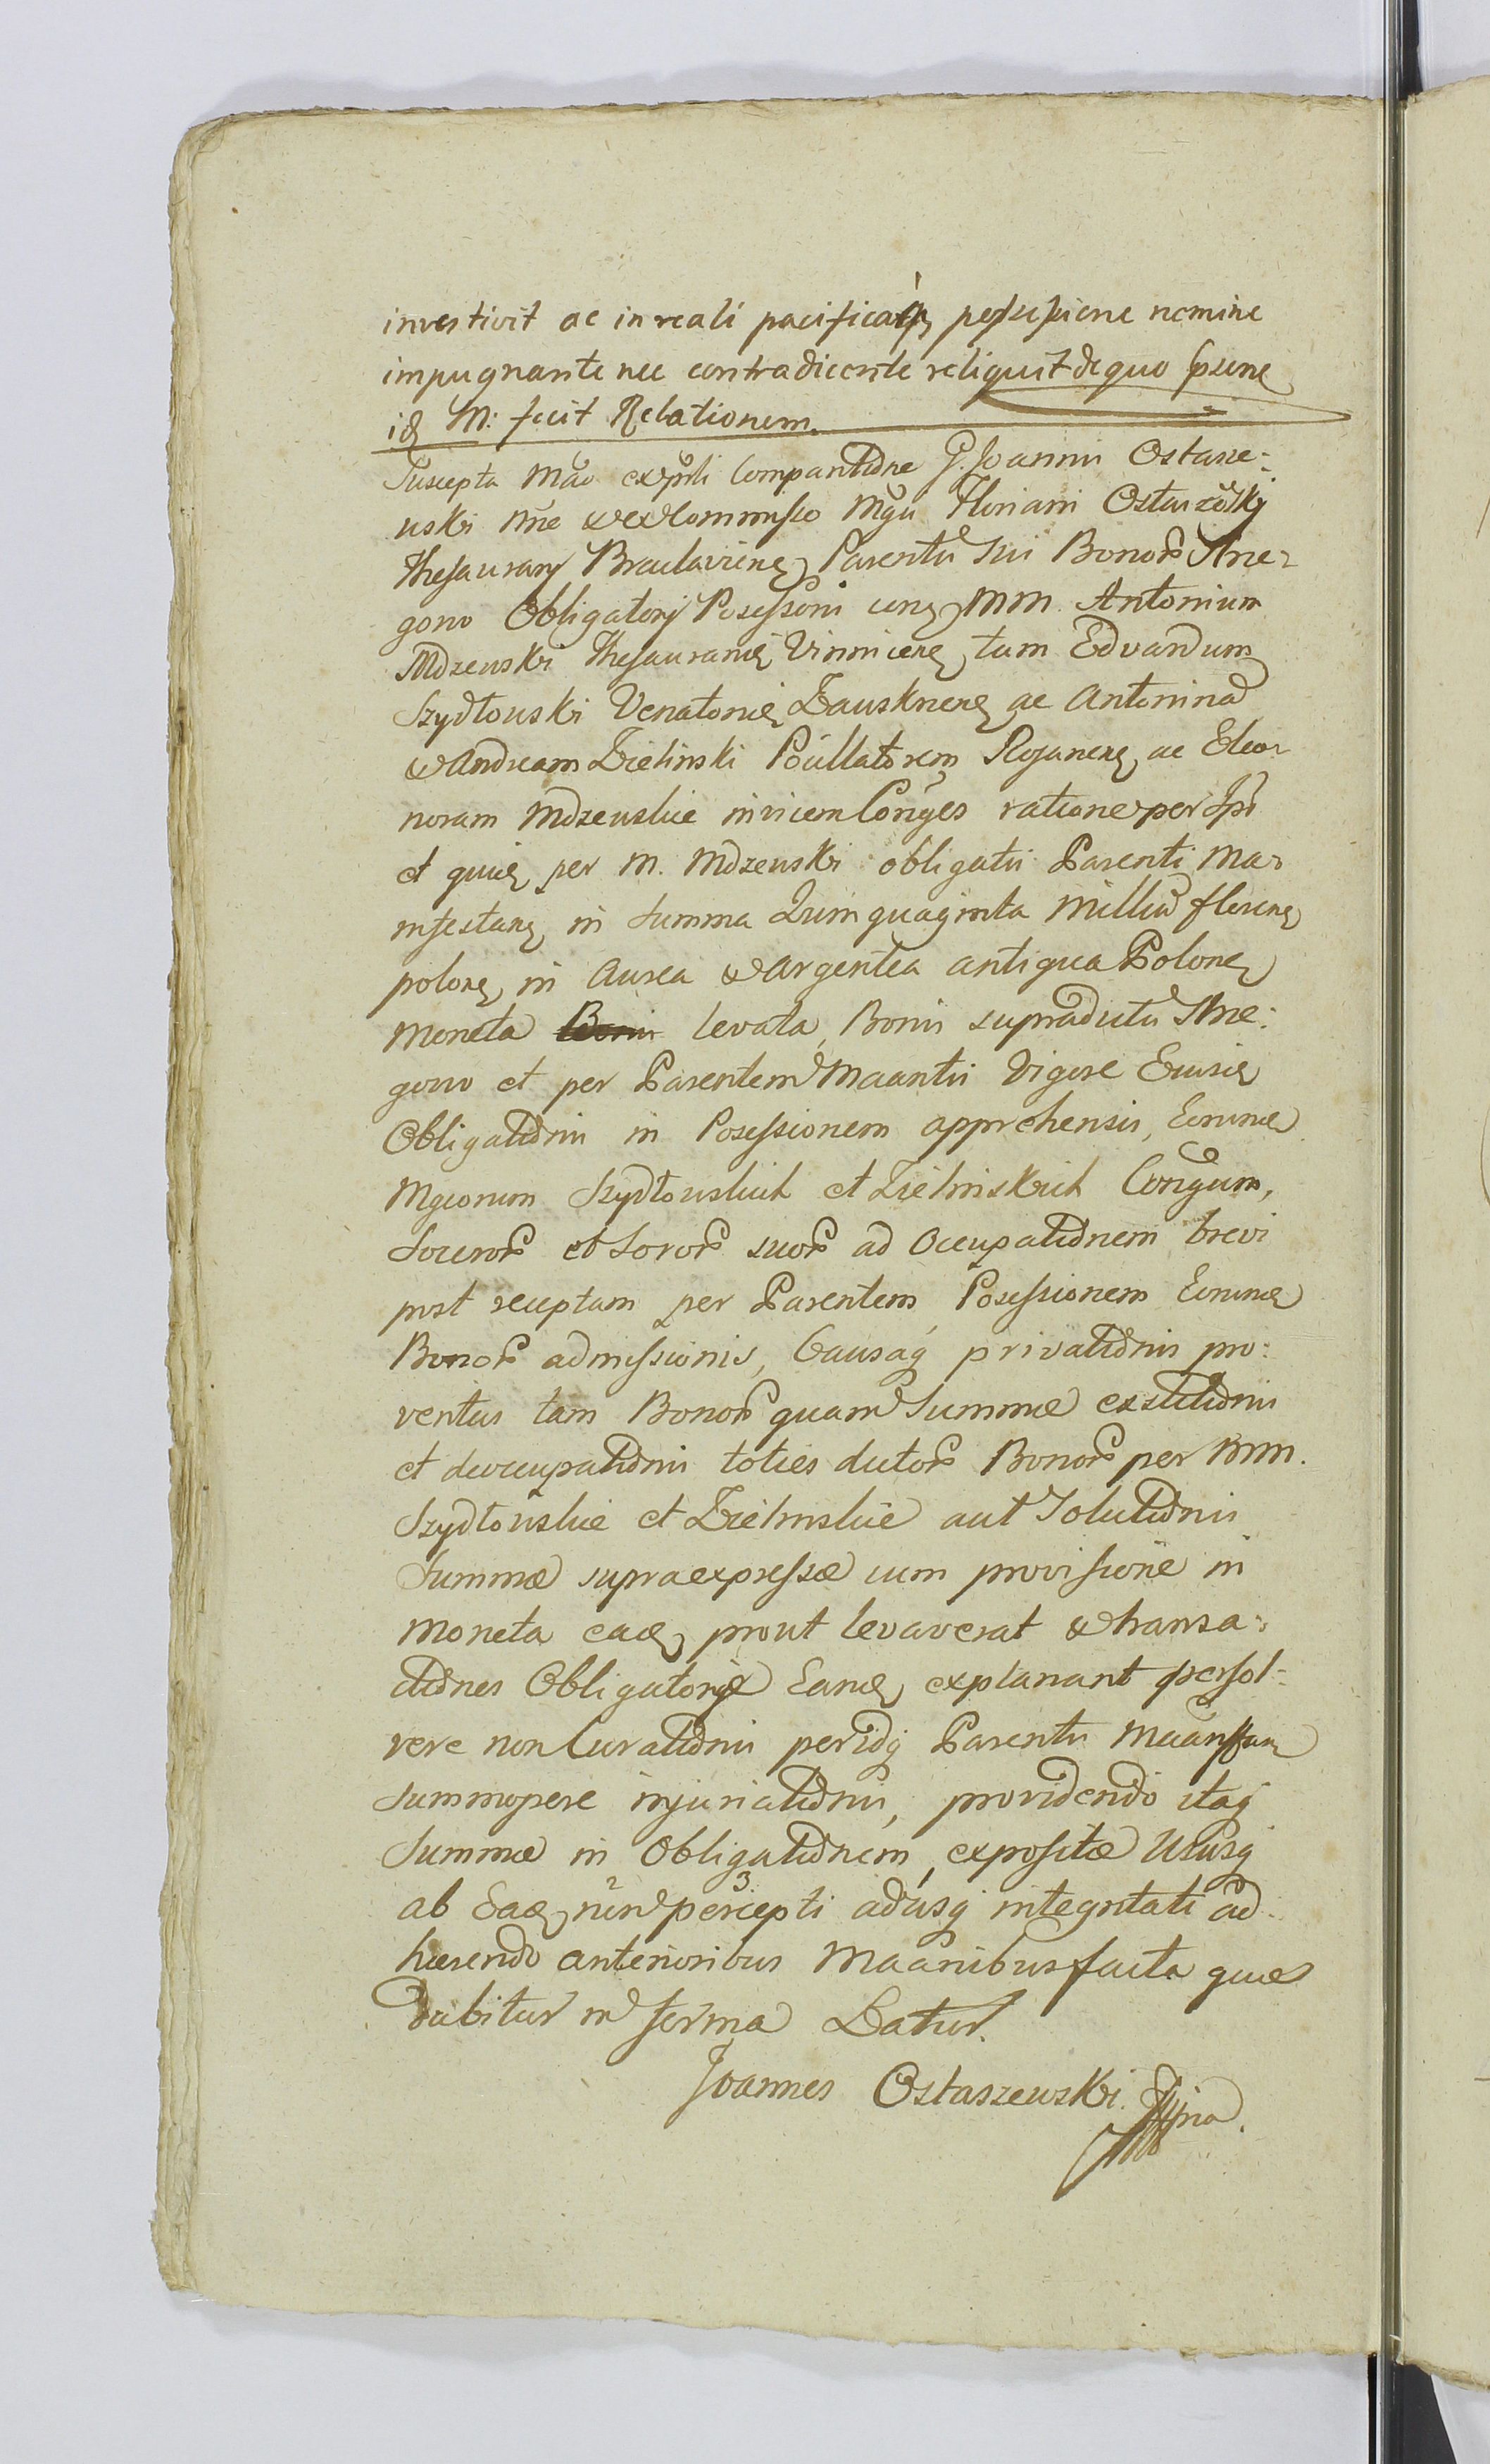 investivit ac in reali pacificaq possessione nemine
impugnante nec contradicente reliquit de quo psens
id M: fecit Relationem.
Suscepta Mao ex psti Comparitióne G. Joannis Ostasze:
wski Nne & ex Commisso Mgci Floriani Ostaszewski
Thesaurary Braclavien Parentis sui Bonor Strze:
gowo Obligatory Possessoris cons MM. Antonium
Mdzewski Thesaurariu Vinnicen, tum Edvardum
Szydłowski Venatore Zauskrnen ac Antoninā
& Andream Zielinski Pocillatorem Rozanen, ac Eleo:
noram Mdzewskie invicem Conges ratione per Ipō
et quid per M. Mdzewski obligatis Parenti Ma:
nfestans, in Summa Quinquaginta Milliū floren
polon, in Aurea & Argentea antiqua Polon
Moneta levata, Bonis supradictis Strze:
gowo et per Parentem Maantis Vigore Eiusd
Obligatiónis in Possessionem apprehensis, Eorund
Mgcorum Szydłowskich et Zielinskich Congum,
Sociror et Soror suor ad Occupatiónem brevi
post receptam per Parentem Possessionem Eorund
Bonor admissionis, Causaq privatiónis pro:
ventus tam Bonor quam Summæ exstitiónis
et deoccupatiónis toties dictor Bonor per MM.
Szydłowskie et Zielinskie aut Solutiónis
Summæ supraexpressæ cum provisione in
Moneta ead, prout levaverat & transa:
ctiónes Obligatoriæ Eand, explanant persol:
vere non Curatiónis per idq Parentis Maantis
summopere injuriatiónis, providendo itaq
Summæ in Obligatiónem expositæ Ususq
ab Ead, non percepti adusq integritati ad:
hærendo anterioribus Maanibus facta quæ
dabitur in forma Datur.
Joannes Ostaszewski mpria.